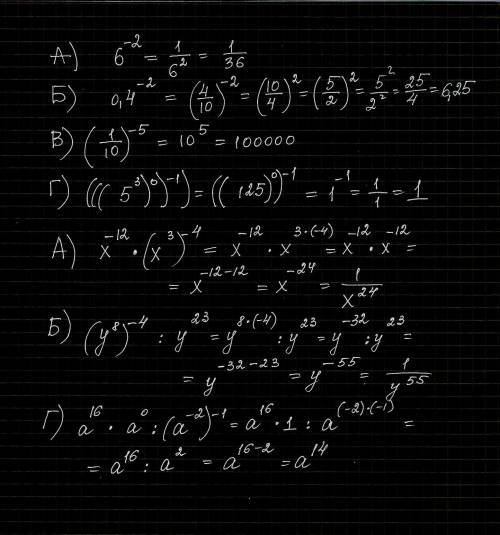 А) 6⁻² = 1/6² = 1/36
Б) 0,4⁻² = (4/10)⁻² = (10/4)² = (5/2)² = 5²/2² = 25/4 = 6,25
В) (1/10)⁻⁵ = 10⁵ = 100000
Г) (((5³)⁰)⁻¹) = ((125)⁰)⁻¹ = 1⁻¹ = 1/1 = 1
А) x⁻¹² · (x³)⁻⁴ = x⁻¹² · x³·⁽⁻⁴⁾ = x⁻¹² · x⁻¹² =
= x⁻¹²⁻¹² = x⁻²⁴ = 1/x²⁴
Б) (y⁸)⁻⁴ : y²³ = y⁸·⁽⁻⁴⁾ : y²³ = y⁻³² : y²³ =
= y⁻³²⁻²³ = y⁻⁵⁵ = 1/y⁵⁵
Г) a¹⁶ · a⁰ : (a⁻²)⁻¹ = a¹⁶ · 1 : a⁽⁻²⁾·⁽⁻¹⁾ =
= a¹⁶ : a² = a¹⁶⁻² = a¹⁴